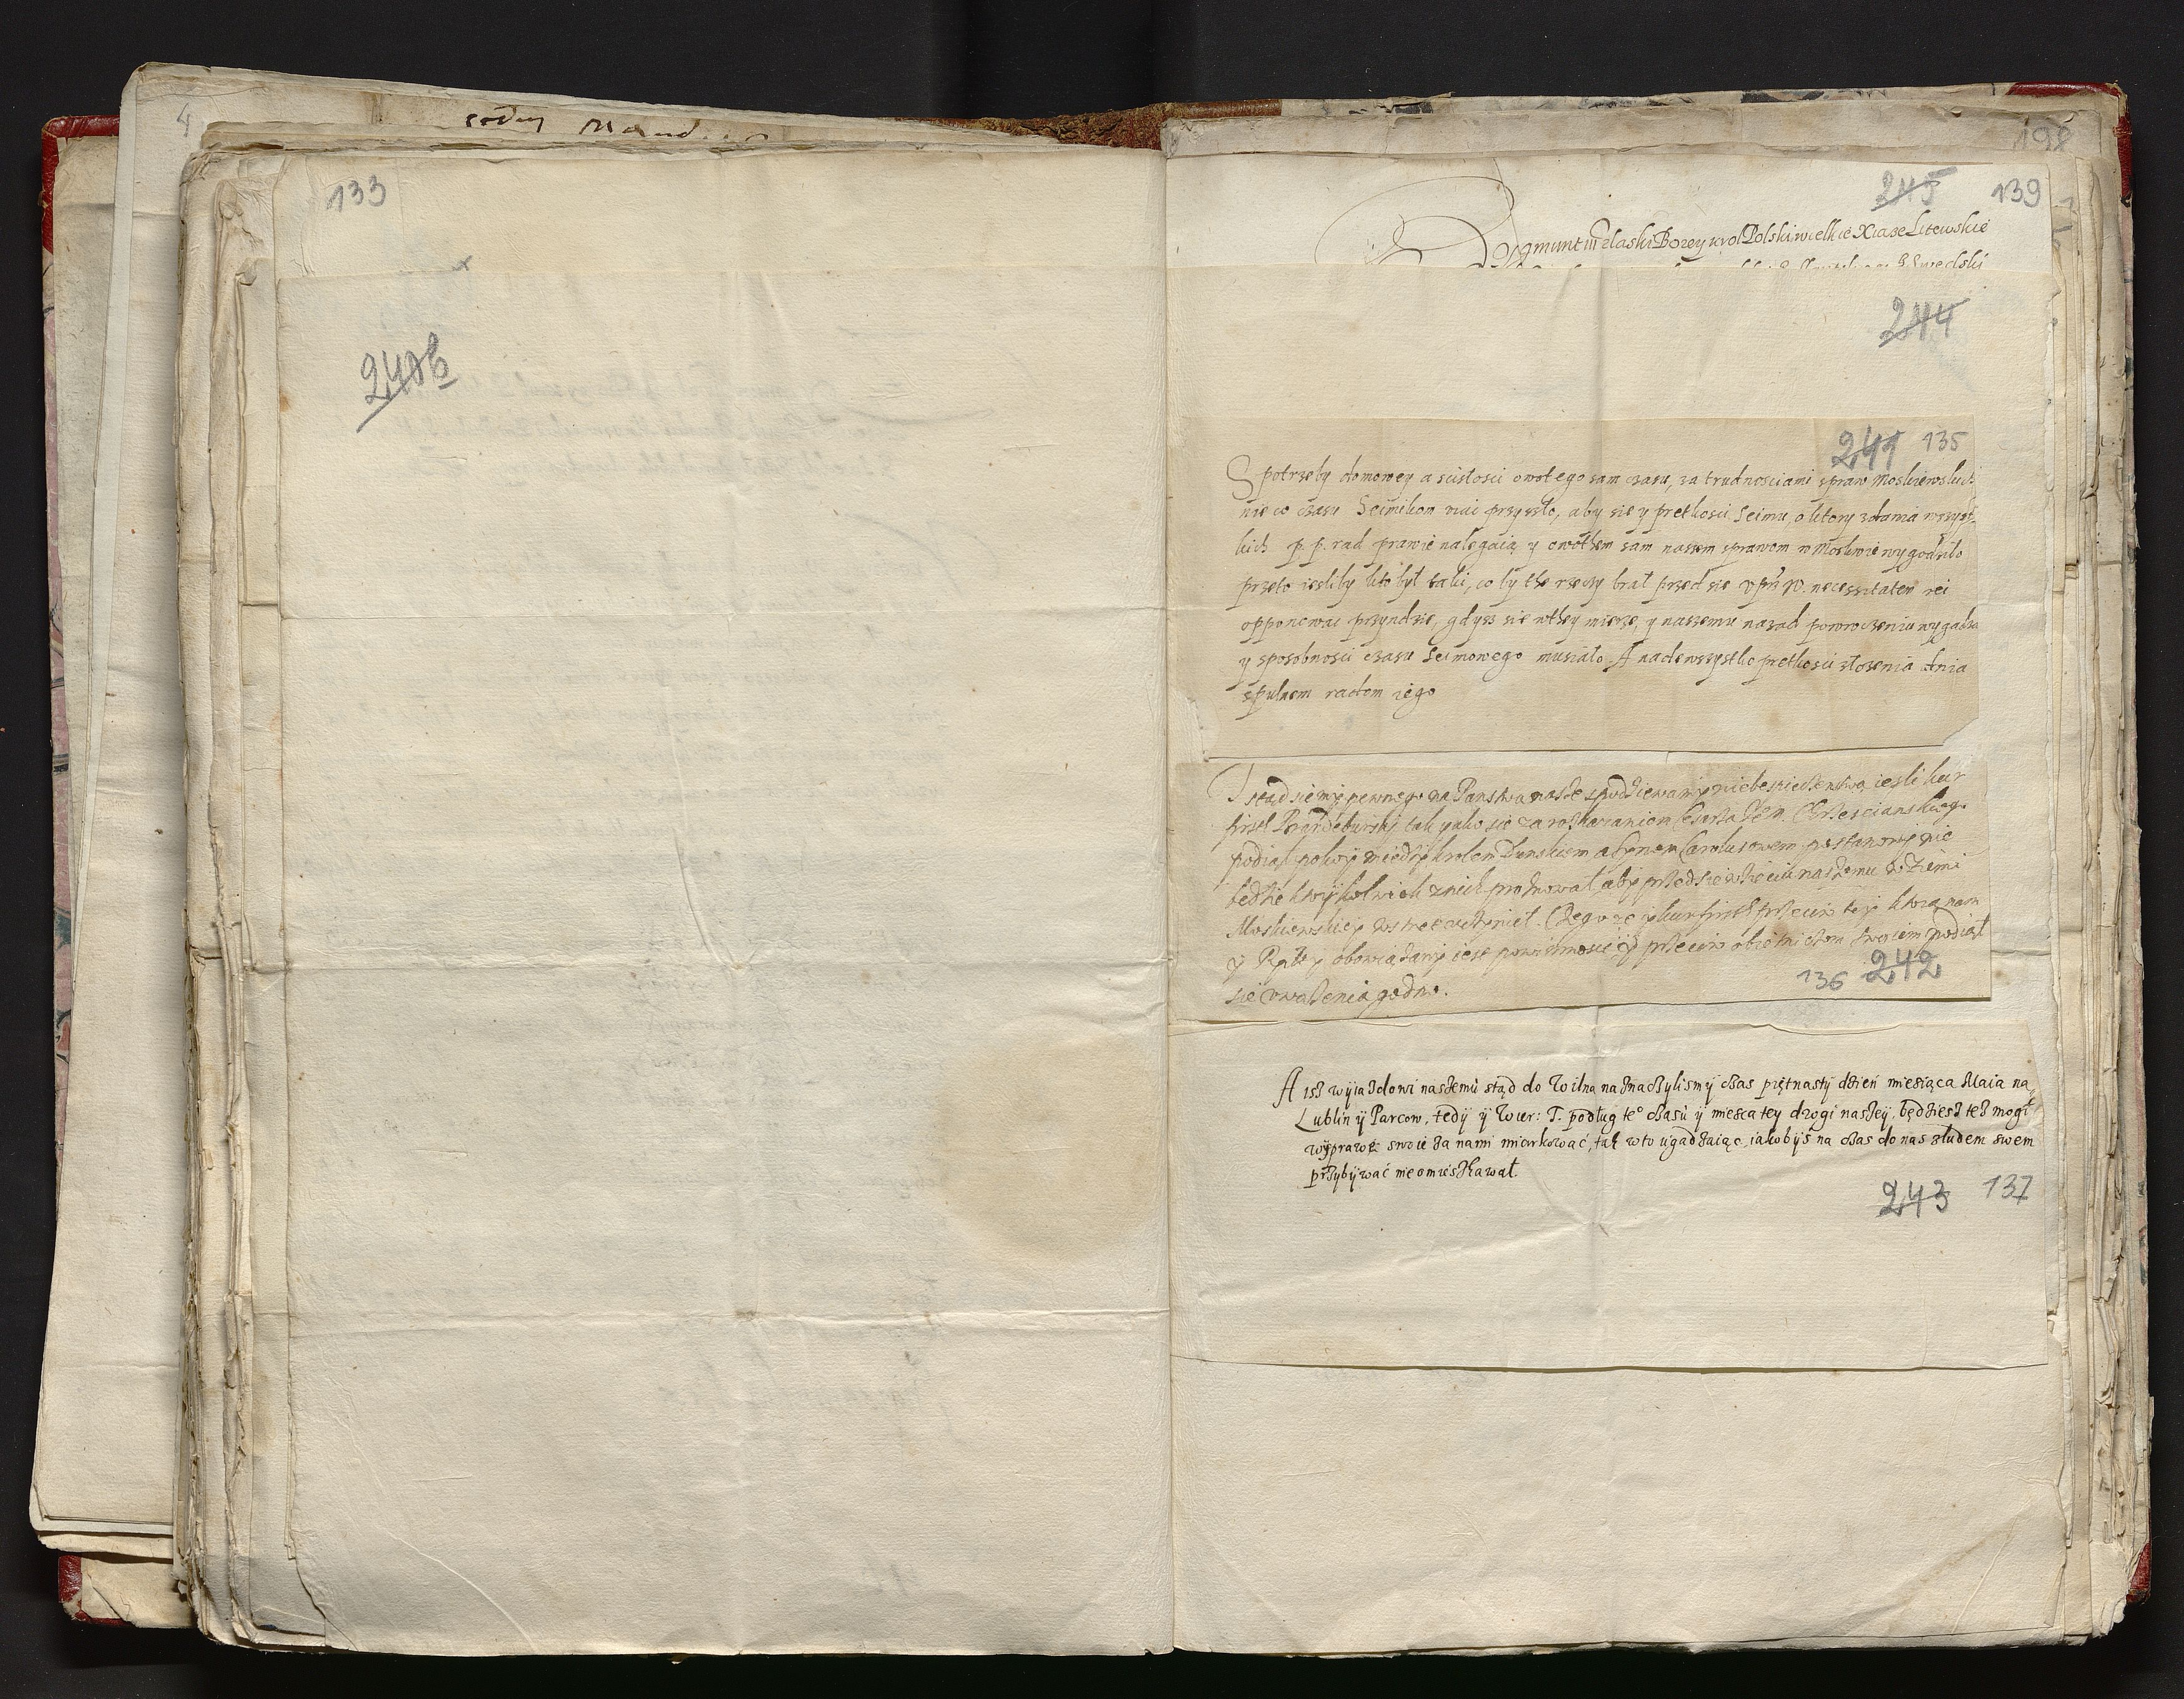 4
133
240b
198
245 139
Zygmunt III z łaski Bozey krol Polski wielkie Xiąze Litewskie
244
241 135
S potrzeby domowey a scisłosci owoł ego sam czasu, za trudnosciami spraw Moskiewskich
nie co czasu Seimikom uiąc przyszło, aby sie y prętkosci Seimu, o ktory zdania wszyst-
kich p. p. rad prawie nalegaią y owothem sam naszem sprawom w Moskwie wygodziło
przeto iesliby kto był taki, co by the rzeczy brał przed sie necessitatem rei
opponowac przyndzie, gdysz sie wthey mierze, y naszemu nazad powroczeniu wygadza
y sposobnosci czasu Seimowego musiało. A nadewszystko prętkosci złozenia dnia
spulnem radom iego
I stąd sie my pewnego na Panstwa nasze spodziewamy niebespieczenstwa iesli kur
firszt Brandeburski tak yako sie za roskazaniem Cesarza Jem. Chrzescianskiego
podiął pokoy miedzy krolem Dunskiem a Synem Carolusowem postanowy nie
będzie ktoryzkolwiek z nich prożnował, aby przedsiewzieciu naszemu w Ziemi
Moskiewskiey wstręt uczynieł. Czego ze ij kurfirszt przeciw tey ktorą nam
y Rptey obowiązany iest powinnosci y przeciw obietniczom swoiem podiął
sie uwazenia godno.
136 242
A isz wyiazdowi naszemu stąd do Wilna naznaczylismy czas piętnasty dzień miesiąca Maia na
Lublin y Parcow, tedy y Wier: T. podług te° czasu y mieszca tey drogi naszey, będziesz tesz mogł
wyprawę swoie za nami miarkować, tak w to ugadzaiąc, iakobyś na czas do nas zludem swem
przybywać nieomieszkawał.
243 137